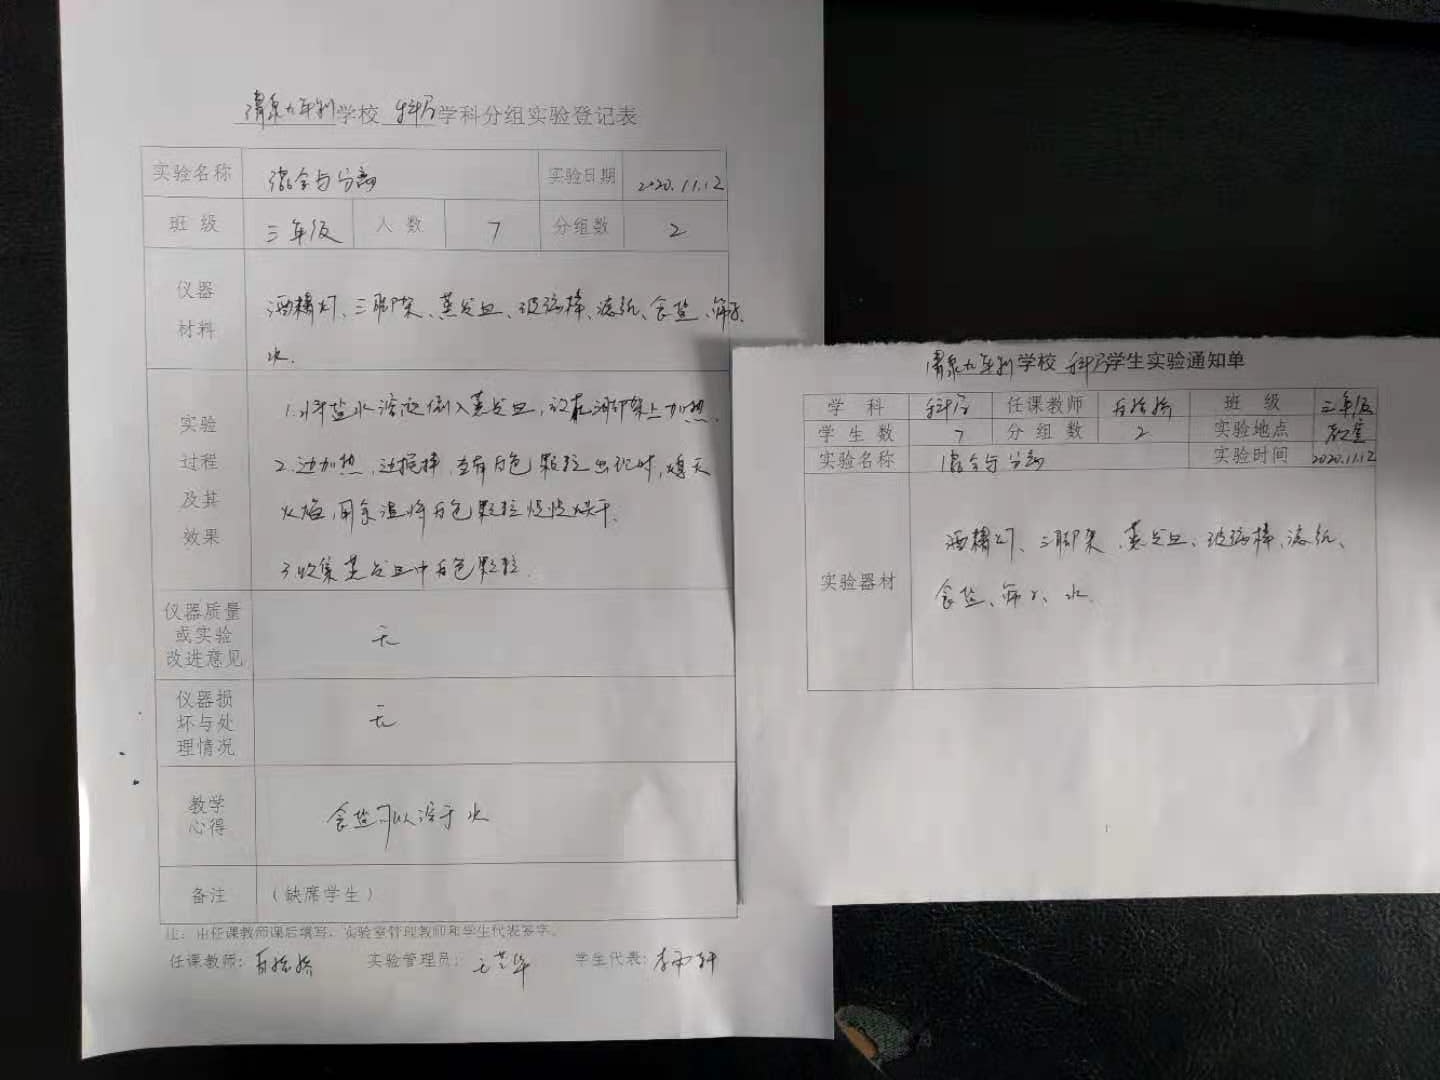 清泉九年制学校 科学学科分组实验登记表
实验名称 混合与分离 实验日期 2020.11.12
班 级 三年级 人 数 7 分组数 2
仪器材料 酒精灯、三脚架、蒸发皿、玻璃棒、滤纸、食盐、筛子、
水.
实验过程及其效果 1.将盐水溶液倒入蒸发皿,放在三脚架上加热.
2.边加热,边搅拌,当有白色颗粒出现时,熄灭
火焰,用余温将白色颗粒慢慢烘干.
3.收集蒸发皿中白色颗粒.
仪器质量或实验改进意见 无
仪器损坏与处理情况 无
教学心得 食盐可以溶于水
备注 (缺席学生)
注:由任课教师课后填写,实验室管理教师和学生代表签字。
任课教师: 实验管理员: 学生代表:
清泉九年制学校 科学学生实验通知单
学 科 科学 任课教师 班 级 三年级
学 生 数 7 分 组 数 2 实验地点 教室
实验名称 混合与分离 实验时间 2020.11.12
实验器材 酒精灯、三脚架、蒸发皿、玻璃棒、滤纸、
食盐、筛子、水.